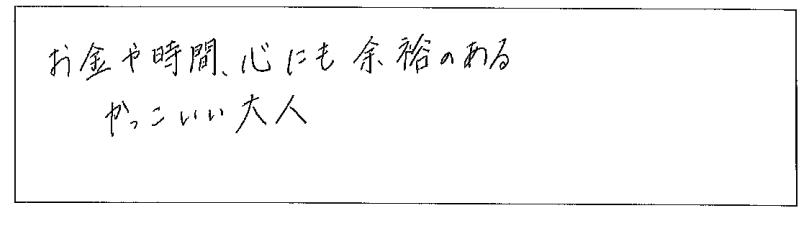 お金や時間、心にも余裕のある
かっこいい大人